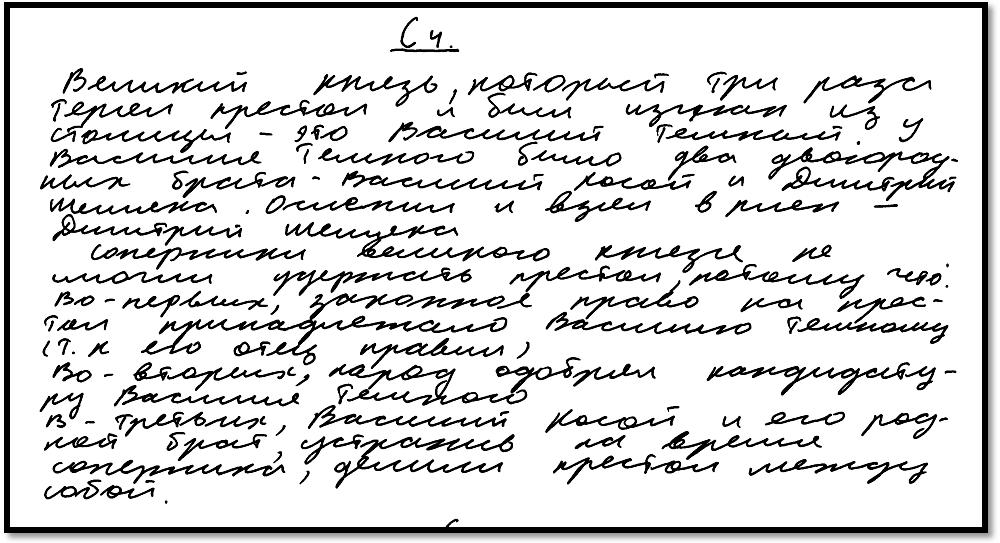 С4.
Великий князь, который три раза
терял престол и был изгнан из
столицы - это Василий Темный У
Василия Темного было два двоюрод-
ных брата - Василий Косой и Дмитрий
Шемяка. Ослепил и взял в плен –
Дмитрий Шемяка
Соперники великого князя не
могли удержать престол, потому что:
Во-первых, законное право на прес-
тол принадлежало Василию Темному
(т. к его отец правил)
Во-вторых, народ одобрял кандидату-
ру Василия Темного
В-третьих, Василий Косой и его род-
ной брат, устранив на время
соперника, делили престол между
собой.